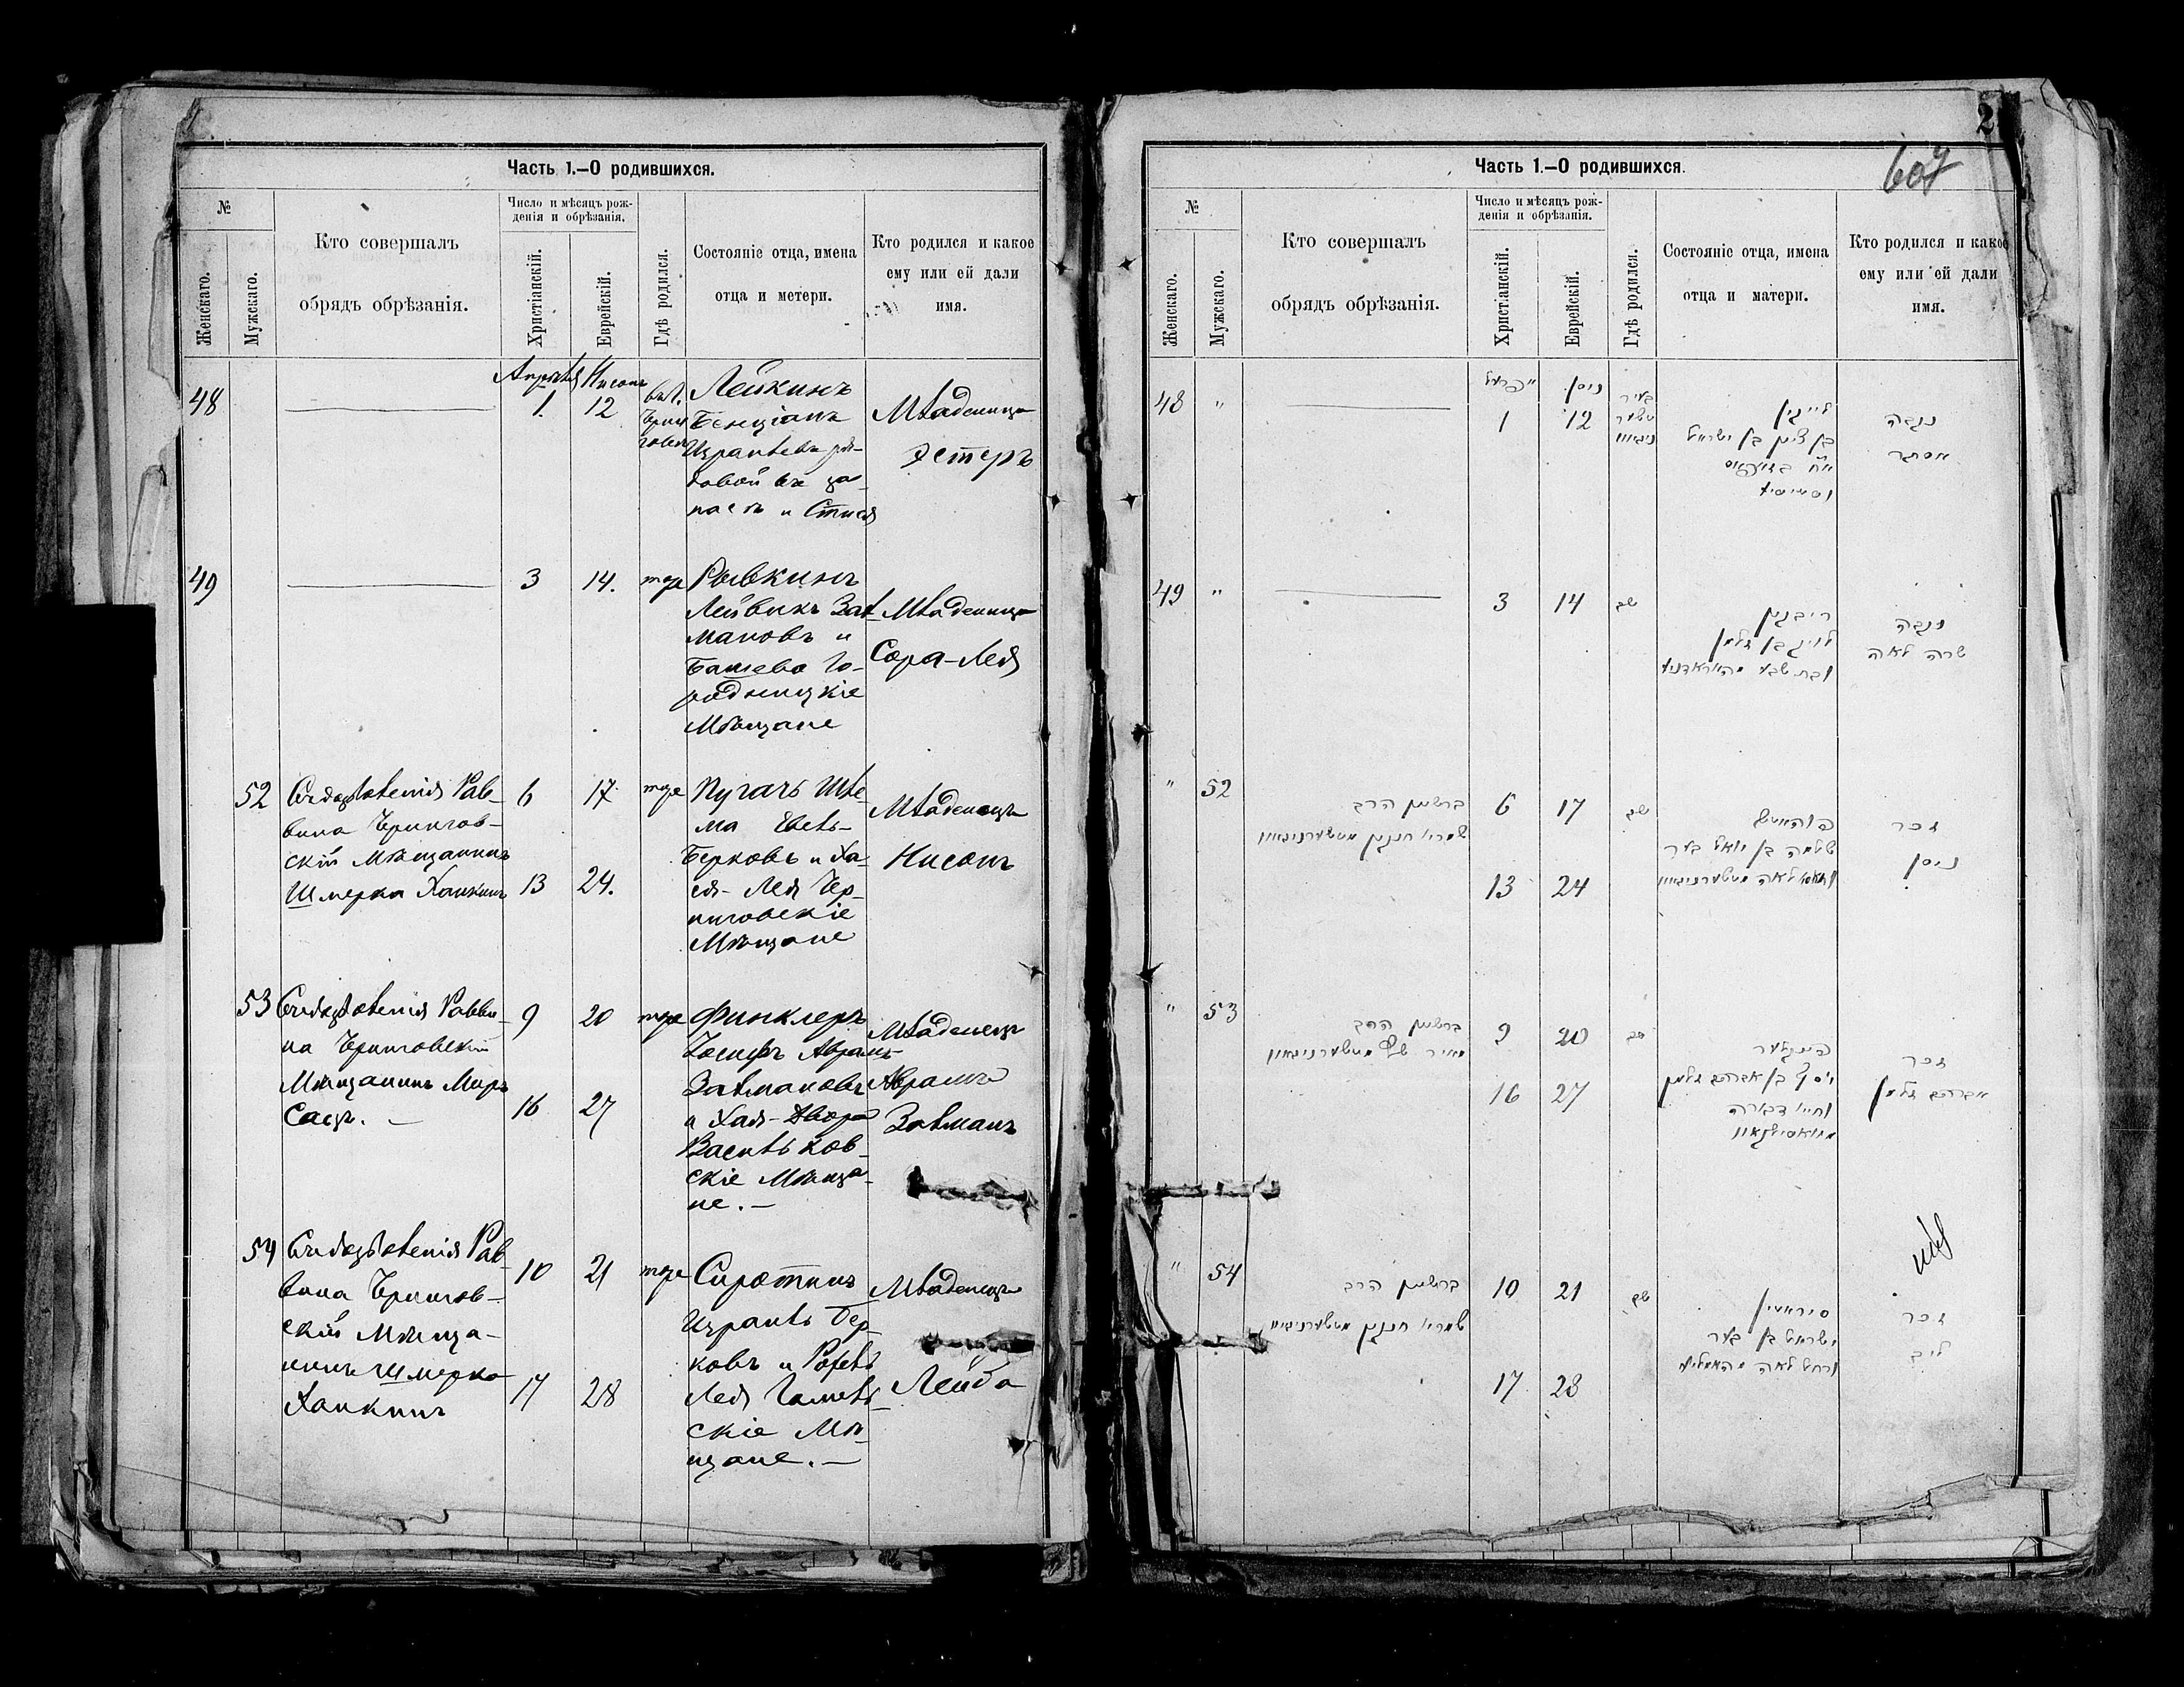 Часть 1.–О родившихся.
№
Женскаго.
Мужскаго.
Кто совершалъ
обрядъ обрѣзанія.
Число и мѣсяцъ рож-
денія и обрѣзанія.
Христіанскій.
Еврейскій.
Гдѣ родился.
Состояніе отца, имена
отца и метери.
Кто родился и какое
ему или ей дали
имя.
Апрѣля Нисонъ
48
1.
12
Лейкинъ
Бенціанъ
Израилевъ ря-
довой въ за-
пасѣ и Стися
Младеница
Эстеръ
49
3
14.
тоже
Рывкинъ
Лейвикъ Зал-
мановъ и
Башева Го-
родницкіе
Мѣщане
Младеница
Сора-Лея
52
Съ дозволенія Рав-
вина Чернигов-
скій Мѣщанинъ
Шмерка Ханкинъ
6
17
13
24.
тоже
Пугачъ Шле-
ма Евель-
Берковъ и Ха-
ся-Лея Чер-
ниговскіе
Мѣщане
Младенецъ
Нисонъ
53
Съ дозволенія Равви-
на Черниговскій
Мѣщанинъ Меръ
9
20
16
27
тоже
Финклеръ
Іосифъ Аврамъ-
Залмановъ
и Хая-Двора
Васильков-
скіе Мѣща-
не.–
Младенецъ
Аврамъ
Залманъ
54
Съ дозволенія Рав-
вина Чернигов-
скій Мѣща-
нинъ Шмерка
Ханкинъ
10
21
17
28
тоже
Сиротинъ
Израиль Бер-
ковъ и Рохель
Лея Гомель-
скіе Мѣ-
щане.–
Младенецъ
Лейба
2
607
Часть 1.–О родившихся.
№
Женскаго.
Мужскаго.
Кто совершалъ
обрядъ обрѣзанія.
Число и мѣсяцъ рож-
денія и обрѣзанія.
Христіанскій.
Еврейскій.
Гдѣ родился.
Состояніе отца, имена
отца и матери.
Кто родился и какое
ему или ей дали
имя.
ניסן
48 "
1
12
בן ציון בן ישראל
נקבה
אסתר
49 "
3
14
ריבקין
לייב בן זלמן
נקבה
שרה לאה
" 52
ברשיון הרב
6
17
13
24
שלמה בן יואל בער
זכר
ניסן
" 53
ברשיון הרב
9
20
16
27
פינקלער
יוסף בן אברהם זלמן
וחיי דבורה
זכר
אברהם זלמן
" 54
ברשיון הרב
10
21
17
28
סיראטין
ישראל בן בער
זכר
ליב